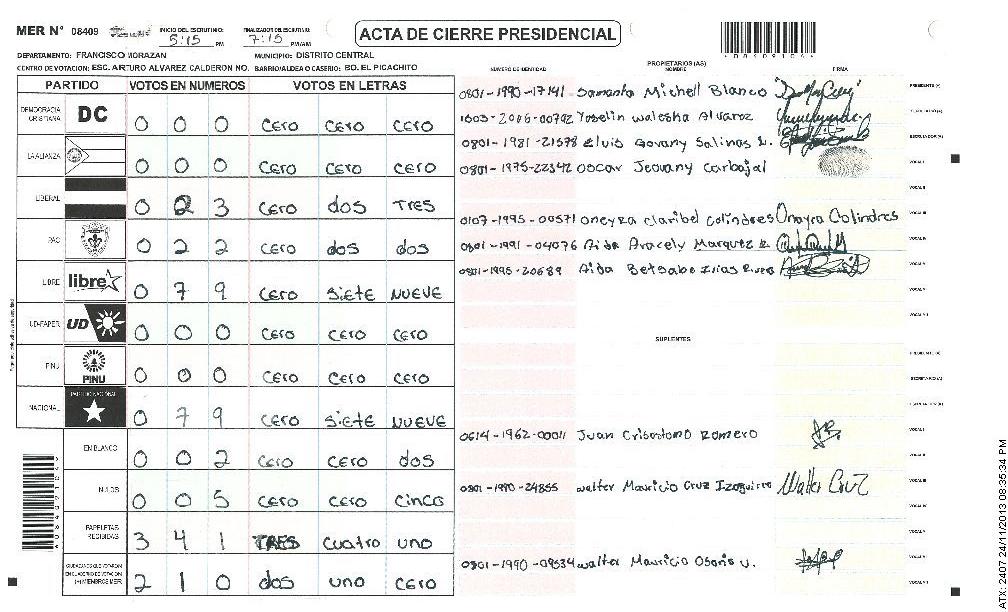 MER N° 08409
INICIO DEL ESCRUTINIO: 5:15 PM
FINALIZADO EL ESCRUTINIO: 7:15 PM/AM
ACTA DE CIERRE PRESIDENCIAL
DEPARTAMENTO: FRANCISCO MORAZAN MUNICIPIO: DISTRITO CENTRAL
CENTRO DE VOTACION: ESC. ARTURO ALVAREZ CALDERON NO. BARRIO/ALDEA O CASERIO: BO. EL PICACHITO
PARTIDO VOTOS EN NUMEROS VOTOS EN LETRAS
DEMOCRACIA CRISTIANA DC 0 0 0 CERO CERO CERO
LA ALIANZA 0 0 0 CERO CERO CERO
LIBERAL 0 2 3 CERO dos TRES
PAC 0 2 2 CERO dos dos
LIBRE libre 0 7 9 CERO SiETE NUEVE
UD-FAPER UD 0 0 0 CERO CERO CERO
PINU PINU 0 0 0 CERO CERO CERO
NACIONAL PARTIDO NACIONAL 0 7 9 CERO SiETE NUEVE
EN BLANCO 0 0 2 CERO CERO dos
NULOS 0 0 5 CERO CERO CINCO
PAPELETAS RECIBIDAS 3 4 1 TRES CUATRO UNO
CIUDADANOS QUE VOTARON EN CUADERNO DE VOTACION (+) MIEMBROS MER 2 1 0 dos UNO CERO
PROPIETARIOS (AS)
NUMERO DE IDENTIDAD NOMBRE FIRMA
0801-1990-17141 Samanta Michell Blanco PRESIDENTE (A)
Yoselin walesha Alvarez SECRETARIO (A)
0801-1981-21578 Elvis Govany Salinas ESCRUTADOR (A)
0801-1975-22342 oscar Jeovany Carbajal VOCAL I
VOCAL II
0107-1995-00571 oneyra claribel colindres Onayra Colindres VOCAL III
0801-1991-04076 Aida Aracely Marquez VOCAL IV
0801-1995-20689 Aida Betsabe VOCAL V
VOCAL VI
VOCAL VII
SUPLENTES
PRESIDENTE (A)
SECRETARIO (A)
ESCRUTADOR (A)
0614-1962-00011 Juan Crisostomo Romero VOCAL I
VOCAL II
0801-1990-24855 walter Mauricio Cruz Izaguirre Walter Cruz VOCAL III
VOCAL IV
VOCAL V
0801-1990-09534 walter Mauricio Osorio V. VOCAL VI
VOCAL VII
ATX: 2407 24/11/2013 08:35:34 PM